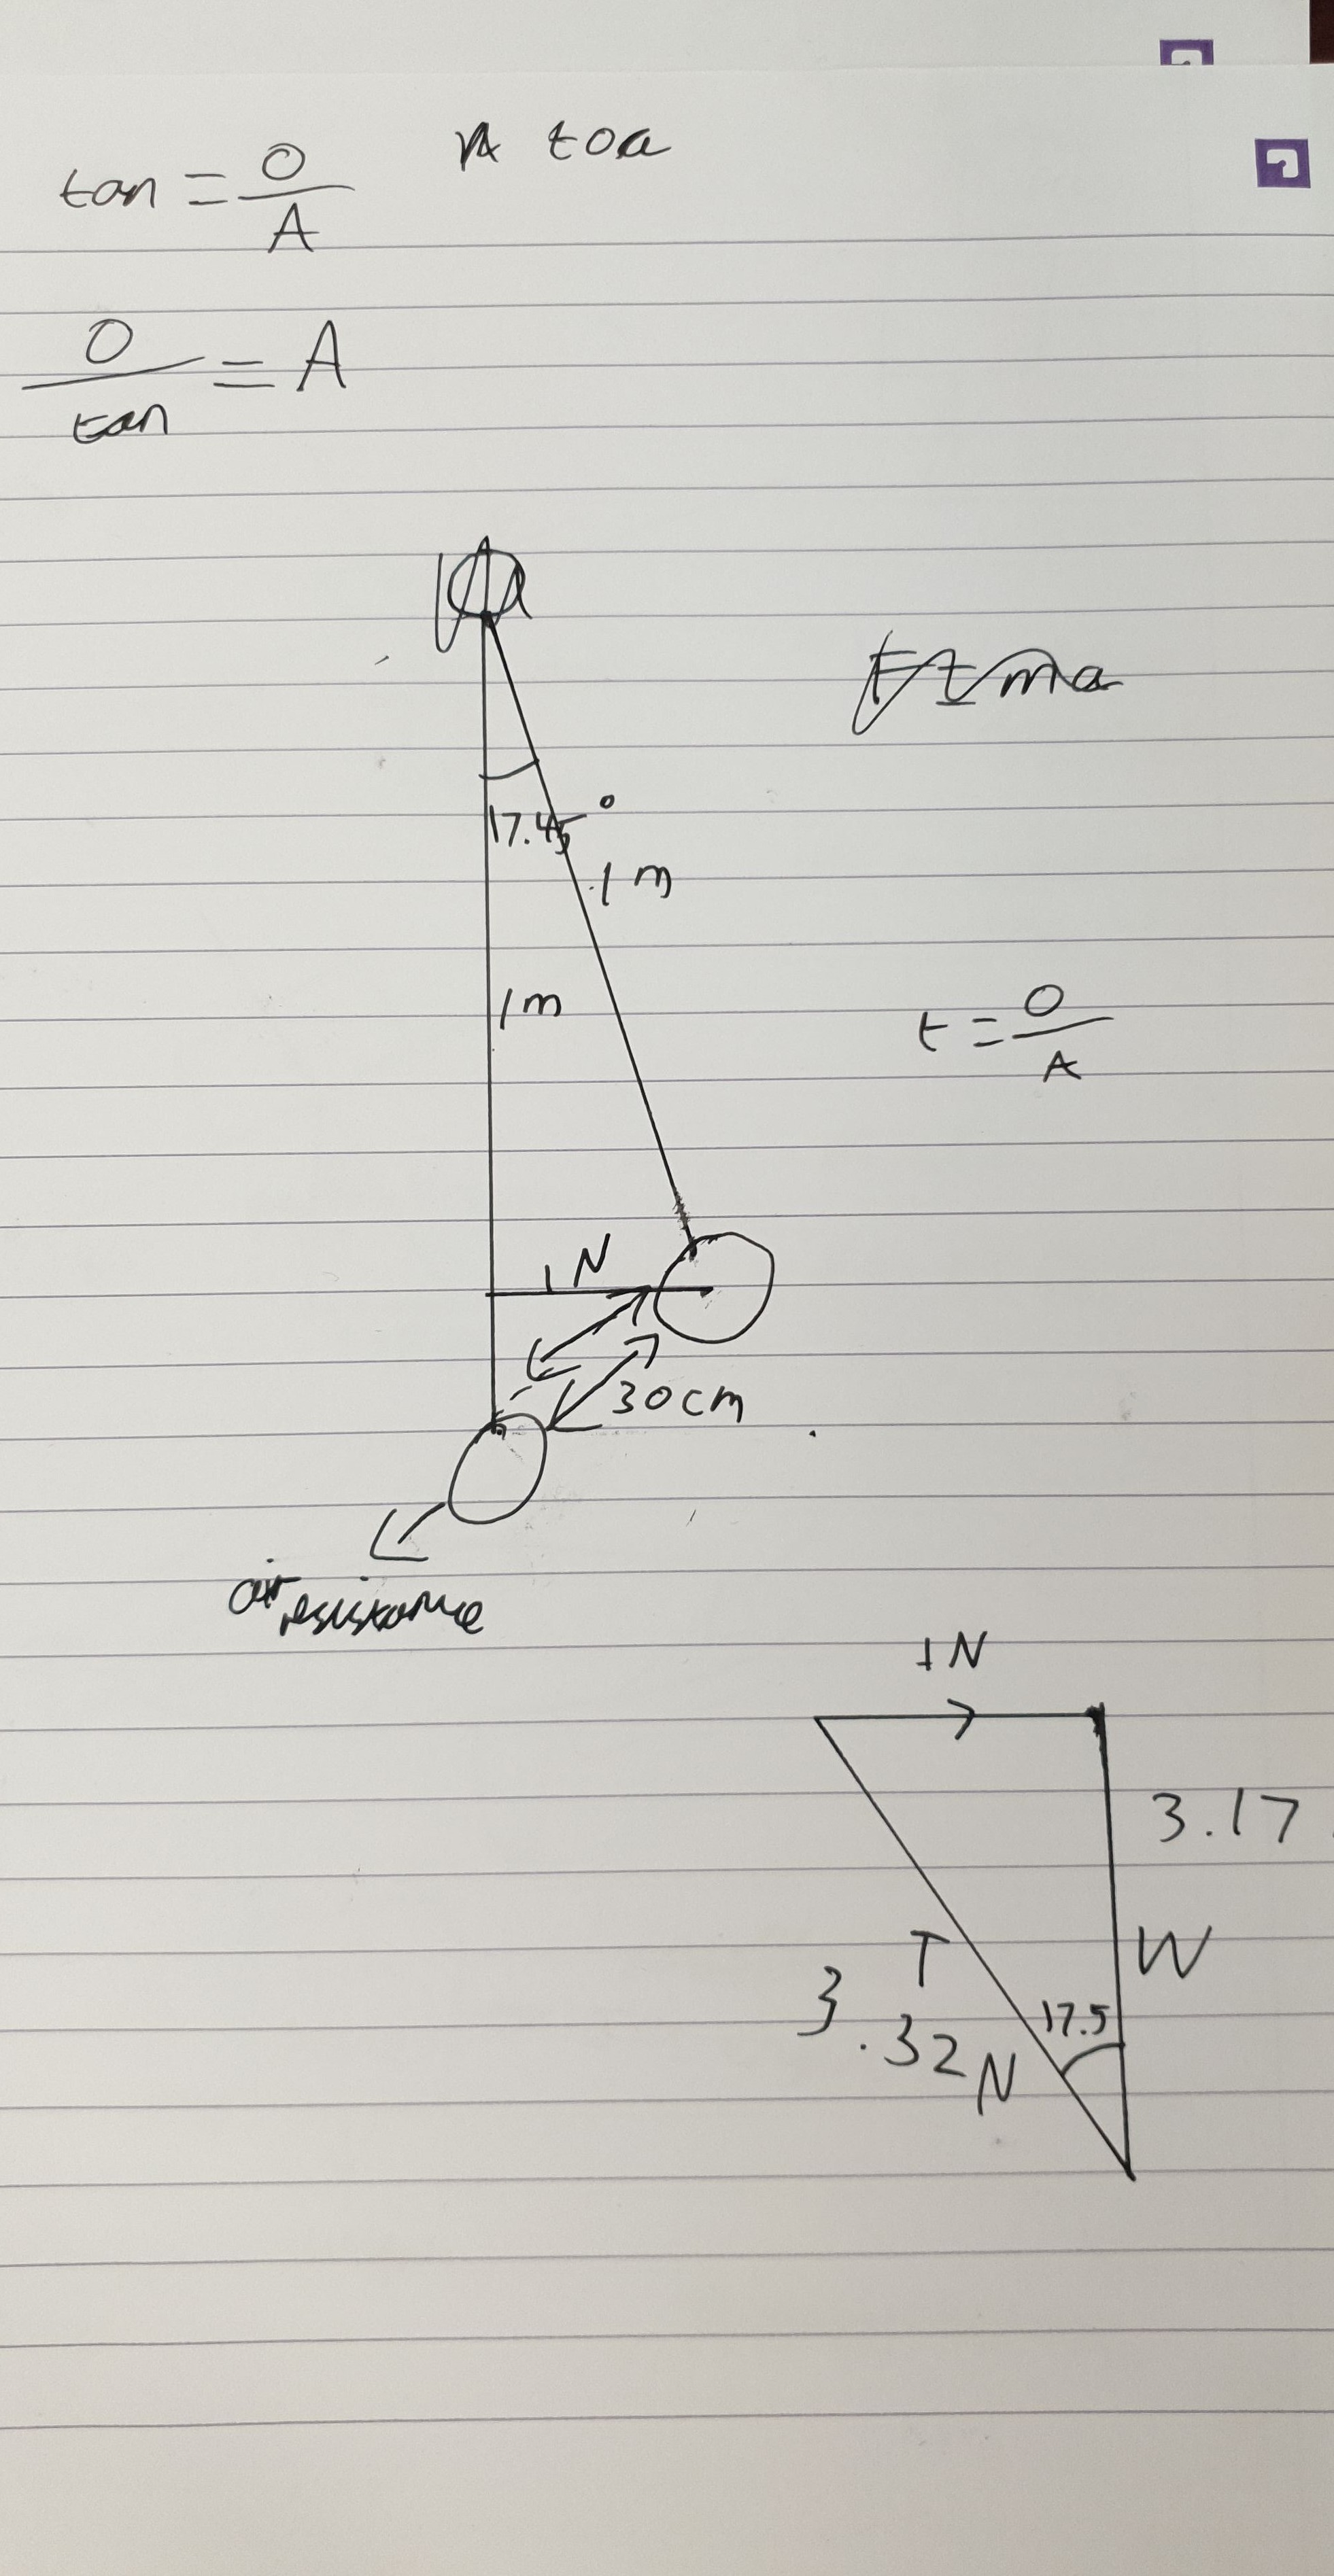 toa
tan = O/A
O/tan = A
17.45°
1 m
1m
t = O/A
1N
30cm
air resistance
1N
3.17
T
W
3.32N
17.5